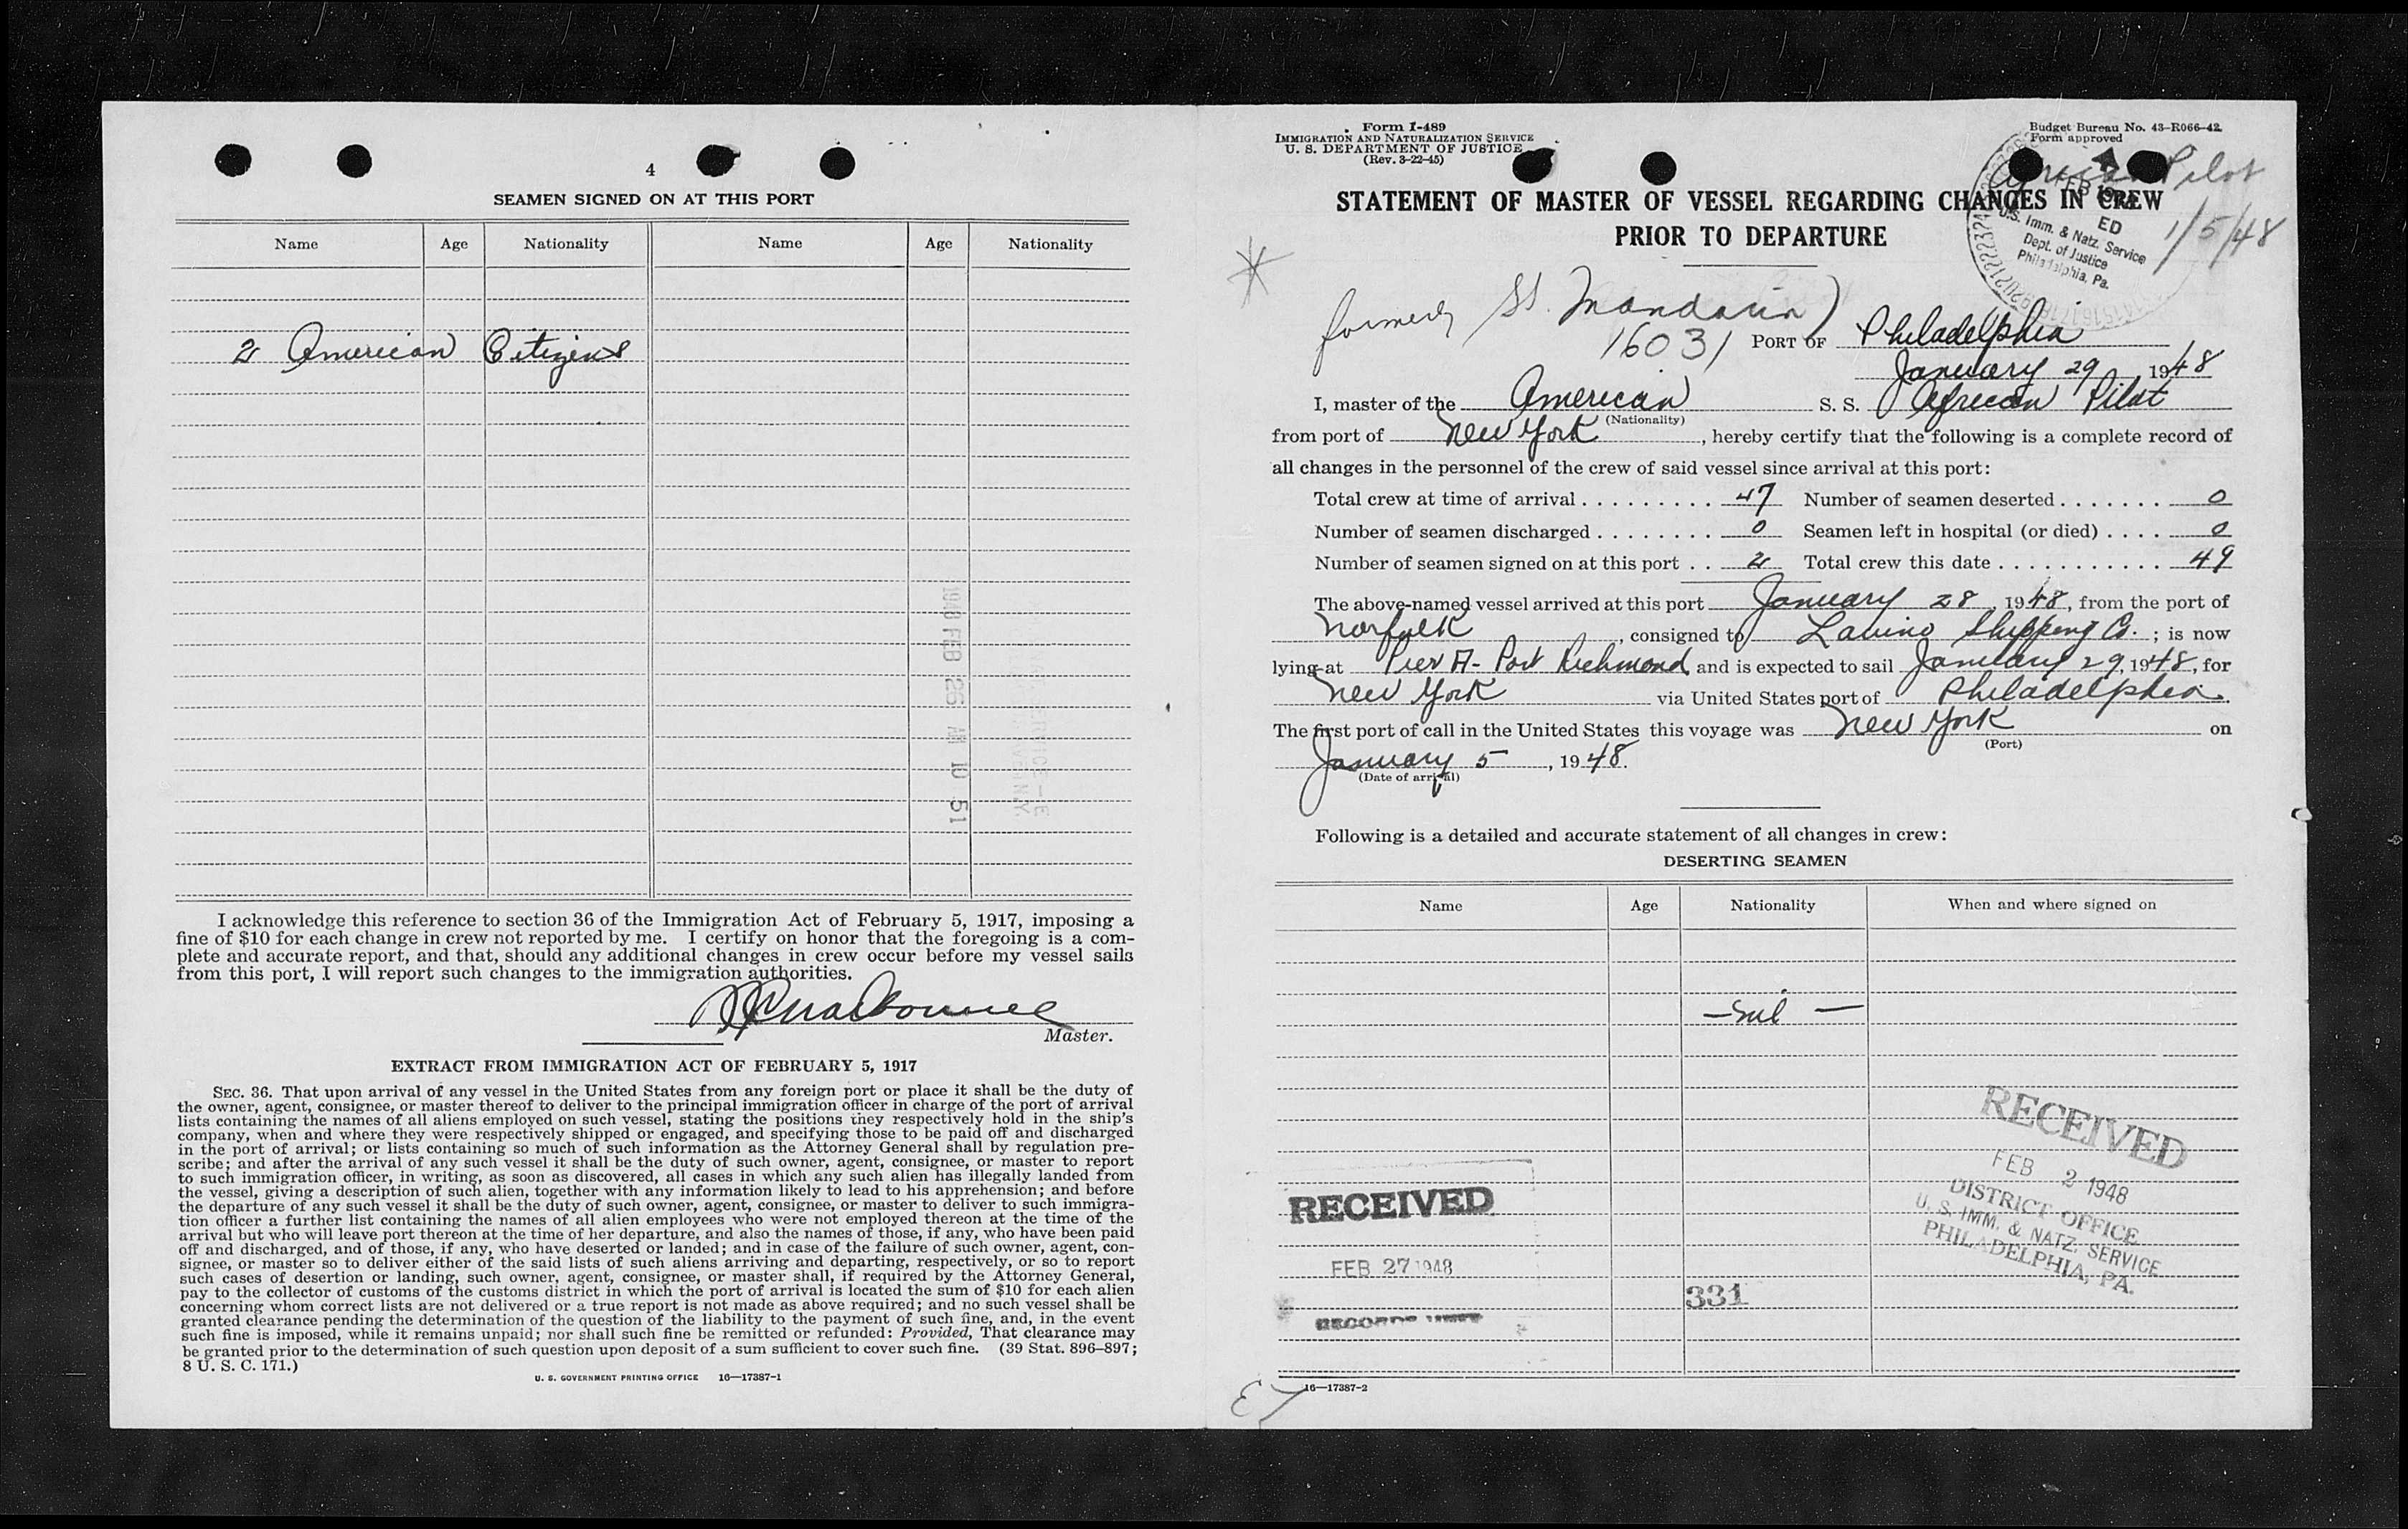 4
SEAMEN SIGNED ON AT THIS PORT
Name Age Nationality Name Age Nationality
2 American Citizens
1948 FEB 26 AM 10 51
I acknowledge this reference to section 36 of the Immigration Act of February 5, 1917, imposing a
fine of $10 for each change in crew not reported by me. I certify on honor that the foregoing is a com-
plete and accurate report, and that, should any additional changes in crew occur before my vessel sails
from this port, I will report such changes to the immigration authorities.
Master.
EXTRACT FROM IMMIGRATION ACT OF FEBRUARY 5, 1917
SEC. 36. That upon arrival of any vessel in the United States from any foreign port or place it shall be the duty of
the owner, agent, consignee, or master thereof to deliver to the principal immigration officer in charge of the port of arrival
lists containing the names of all aliens employed on such vessel, stating the positions they respectively hold in the ship's
company, when and where they were respectively shipped or engaged, and specifying those to be paid off and discharged
in the port of arrival; or lists containing so much of such information as the Attorney General shall by regulation pre-
scribe; and after the arrival of any such vessel it shall be the duty of such owner, agent, consignee, or master to report
to such immigration officer, in writing, as soon as discovered, all cases in which any such alien has illegally landed from
the vessel, giving a description of such alien, together with any information likely to lead to his apprehension; and before
the departure of any such vessel it shall be the duty of such owner, agent, consignee, or master to deliver to such immigra-
tion officer a further list containing the names of all alien employees who were not employed thereon at the time of the
arrival but who will leave port thereon at the time of her departure, and also the names of those, if any, who have been paid
off and discharged, and of those, if any, who have deserted or landed; and in case of the failure of such owner, agent, con-
signee, or master so to deliver either of the said lists of such aliens arriving and departing, respectively, or so to report
such cases of desertion or landing, such owner, agent, consignee, or master shall, if required by the Attorney General,
pay to the collector of customs of the customs district in which the port of arrival is located the sum of $10 for each alien
concerning whom correct lists are not delivered or a true report is not made as above required; and no such vessel shall be
granted clearance pending the determination of the question of the liability to the payment of such fine, and, in the event
such fine is imposed, while it remains unpaid; nor shall such fine be remitted or refunded: Provided, That clearance may
be granted prior to the determination of such question upon deposit of a sum sufficient to cover such fine. (39 Stat. 896–897;
8 U. S. C. 171.)
U. S. GOVERNMENT PRINTING OFFICE 16—17387-1
Form I-489
IMMIGRATION AND NATURALIZATION SERVICE
U. S. DEPARTMENT OF JUSTICE
(Rev. 3-22-45)
Budget Bureau No. 43-R066-42
Form approved
African Pilot
1/5/48
STATEMENT OF MASTER OF VESSEL REGARDING CHANGES IN CREW
PRIOR TO DEPARTURE
U.S. Imm. & Natz. Service
Dept. of Justice
Philadelphia, Pa.
formerly SS. Mandarin)
16031 PORT OF Philadelphia
January 29 1948
I, master of the American S. S. African Pilot
(Nationality)
from port of New York, hereby certify that the following is a complete record of
all changes in the personnel of the crew of said vessel since arrival at this port:
Total crew at time of arrival 47 Number of seamen deserted 0
Number of seamen discharged 0 Seamen left in hospital (or died) 0
Number of seamen signed on at this port 2 Total crew this date 49
The above-named vessel arrived at this port January 28, 1948, from the port of
Norfolk, consigned to Lavino Shipping Co.; is now
lying at Pier A- Port Richmond and is expected to sail January 29, 1948, for
New York via United States port of Philadelphia.
The first port of call in the United States this voyage was New York on
(Port)
January 5, 1948.
(Date of arrival)
Following is a detailed and accurate statement of all changes in crew:
DESERTING SEAMEN
Name Age Nationality When and where signed on
—Nil—
RECEIVED
FEB 2 1948
DISTRICT OFFICE
U. S. IMM. & NATZ. SERVICE
PHILADELPHIA, PA.
RECEIVED
FEB 27 1948
RECORDS UNIT
331
16—17387-2